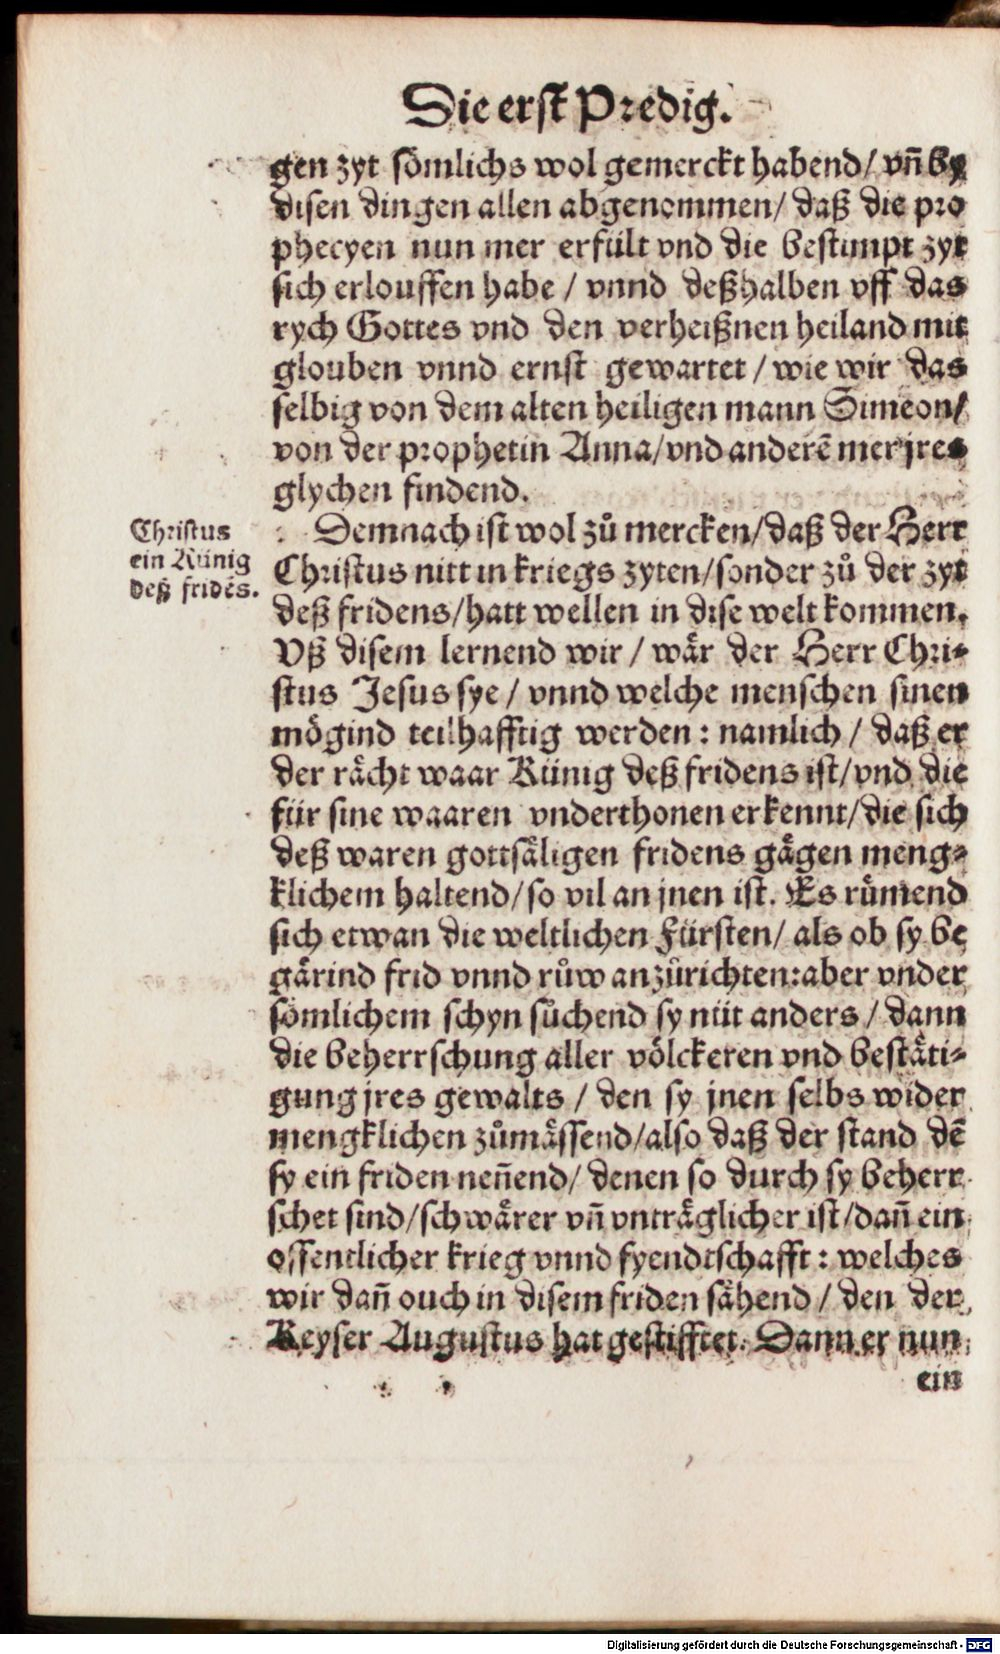 Die erst Predig.
gen zyt sömlichs wol gemerckt habend/ vñ by
disen dingen allen abgenommen/ daß die pro
phecyen nun mer erfült vnd die bestimpt zyt
sich erlouffen habe / vnnd deßhalben vff das
rych Gottes vnd den verheißnen heiland mit
glouben vnnd ernst gewartet / wie wir das
selbig von dem alten heiligen mann Simeon/
von der prophetin Anna/ vnd anderẽ mer jres
glychen findend.
Christus
ein Künig
deß fridẽs.
Demnach ist wol zů mercken/ daß der Herr
Christus nitt in kriegs zyten/ sonder zů der zyt
deß fridens/ hatt wellen in dise welt kommen.
Vß disem lernend wir / wär der Herr Chri-
stus Jesus sye / vnnd welche menschen sinen
mögind teilhafftig werden: namlich / daß er
der rächt waar Künig deß fridens ist/ vnd die
für sine waaren vnderthonen erkennt/ die sich
deß waren gottsäligen fridens gägen meng-
klichem haltend/ so vil an jnen ist. Es rümend
sich etwan die weltlichen Fürsten/ als ob sy be
gärind frid vnnd růw anzůrichten: aber vnder
sömlichem schyn sůchend sy nüt anders / dann
die beherrschung aller völckeren vnd bestäti-
gung jres gewalts / den sy jnen selbs wider
mengklichen zůmässend/ also daß der stand dẽ
sy ein friden neñend/ denen so durch sy beherr
schet sind/ schwärer vñ vnträglicher ist/ dañ ein
offentlicher krieg vnnd fyendtschafft: welches
wir dañ ouch in disem friden sähend / den der
Keyser Augustus hat gestifftet. Dann er nun
ein
Digitalisierung gefördert durch die Deutsche Forschungsgemeinschaft - DFG